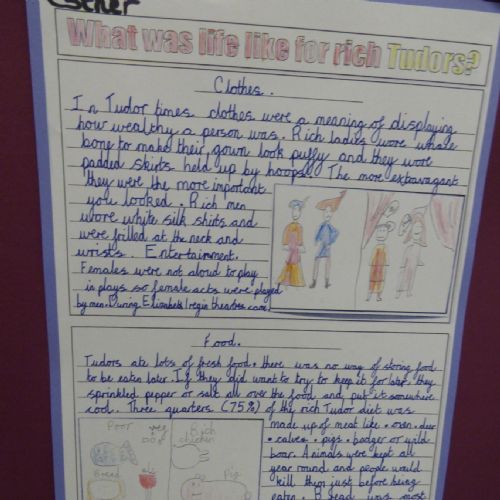 Esther
What was life like for rich Tudors?
Clothes.
In Tudor times clothes were a meaning of displaying
how wealthy a person was. Rich ladies wore whale
bone to make their gown look puffy and they wore
padded skirts held up by hoops. The more extravagant
they were the more important
you looked. Rich men
wore white silk shirts and
were frilled at the neck and
wrists. Entertainment.
Females were not aloud to play
in plays so female acts were played
by men. During Elizabeth I regin theatres came
Food.
Tudors ate lots of fresh food. there was no way of storing food
to be eaten later. If they did want to try to keep it for later they
sprinkled pepper or salt all over the food and put it somewhere
cool. Three quarters (75%) of the rich Tudor diet was
made up of meat like • oxen • deer
• calves • pigs • badger or wild
boar. Animals were kept all
year round and people would
kill them just before being
eaten. Bread was most
Poor
veg
Rich
chicken
Bread
Pig